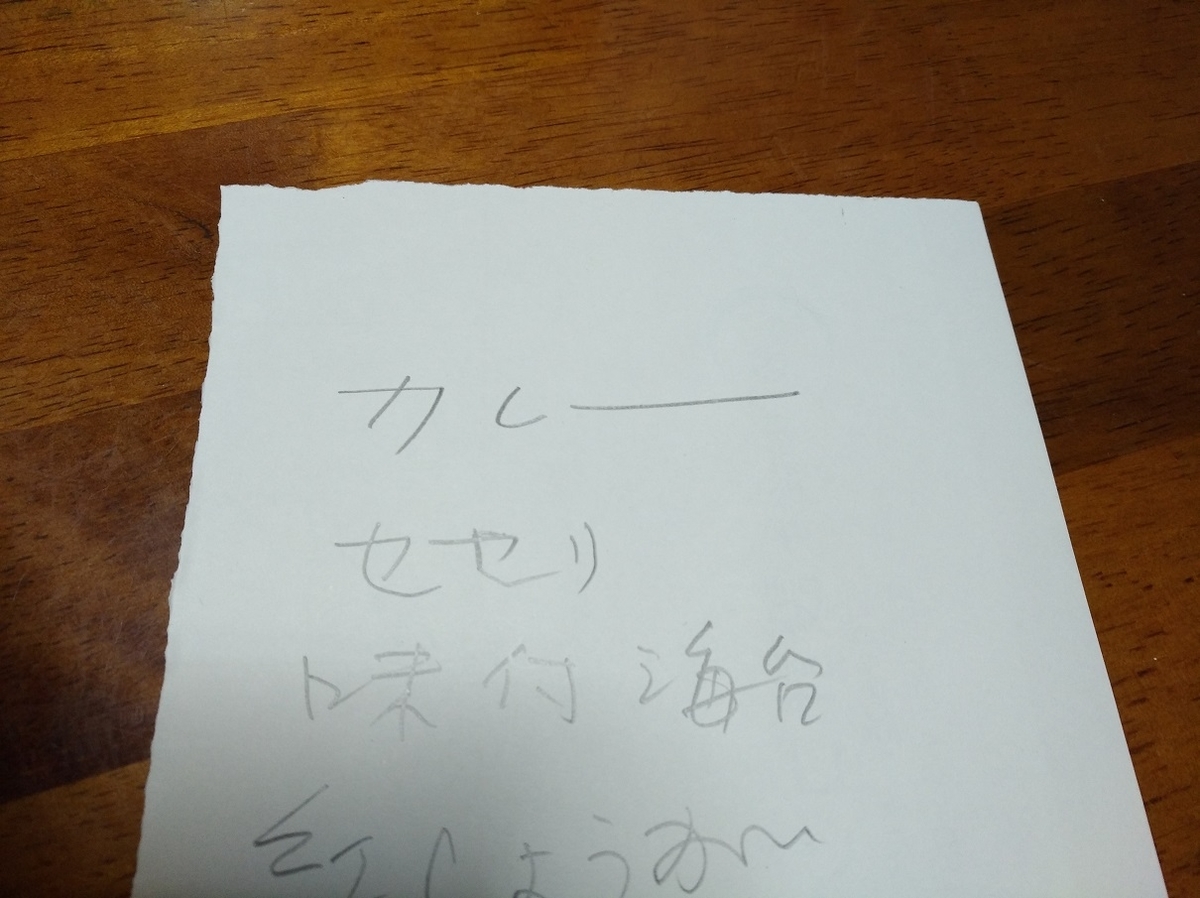 カレー
セセリ
味付海苔
紅しょうが